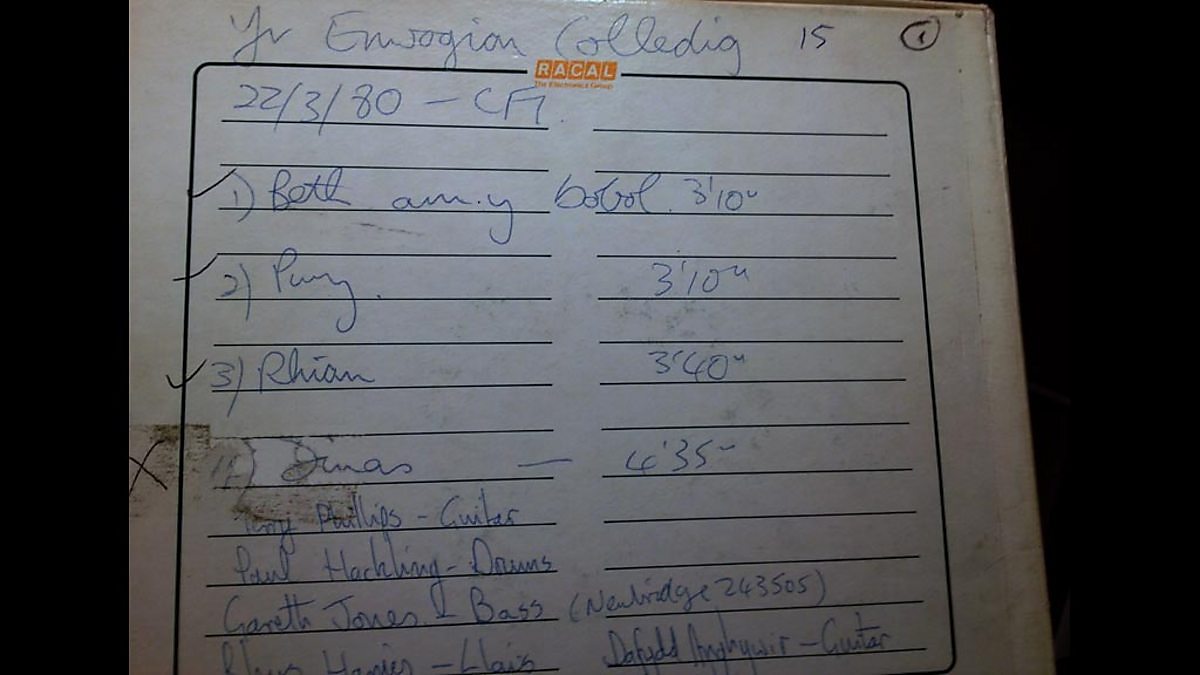 Yr Enwogion Colledig 15 1
RACAL
The Electronics Group
22/3/80 - CF1.
1) Beth am y bobol. 3'10"
2) 3'10"
3) Rhian 3'40"
4) Dinas — 4'35"
Phillips - Guitar
Paul Hackling - Drums
Gareth Jones - Bass (Newbridge 243505)
Rhys - Llais Dafydd - Guitar